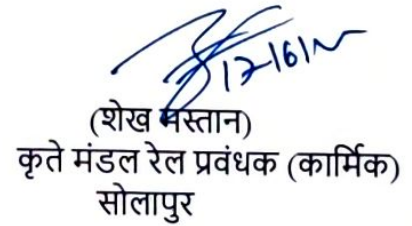 (शेख मस्तान)
कृते मंडल रेल प्रवंधक (कार्मिक)
सोलापुर